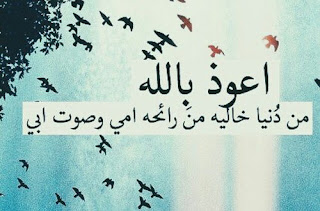 اعوذ بالله
من دُنيا خاليه من رائحه امي وصوت ابي